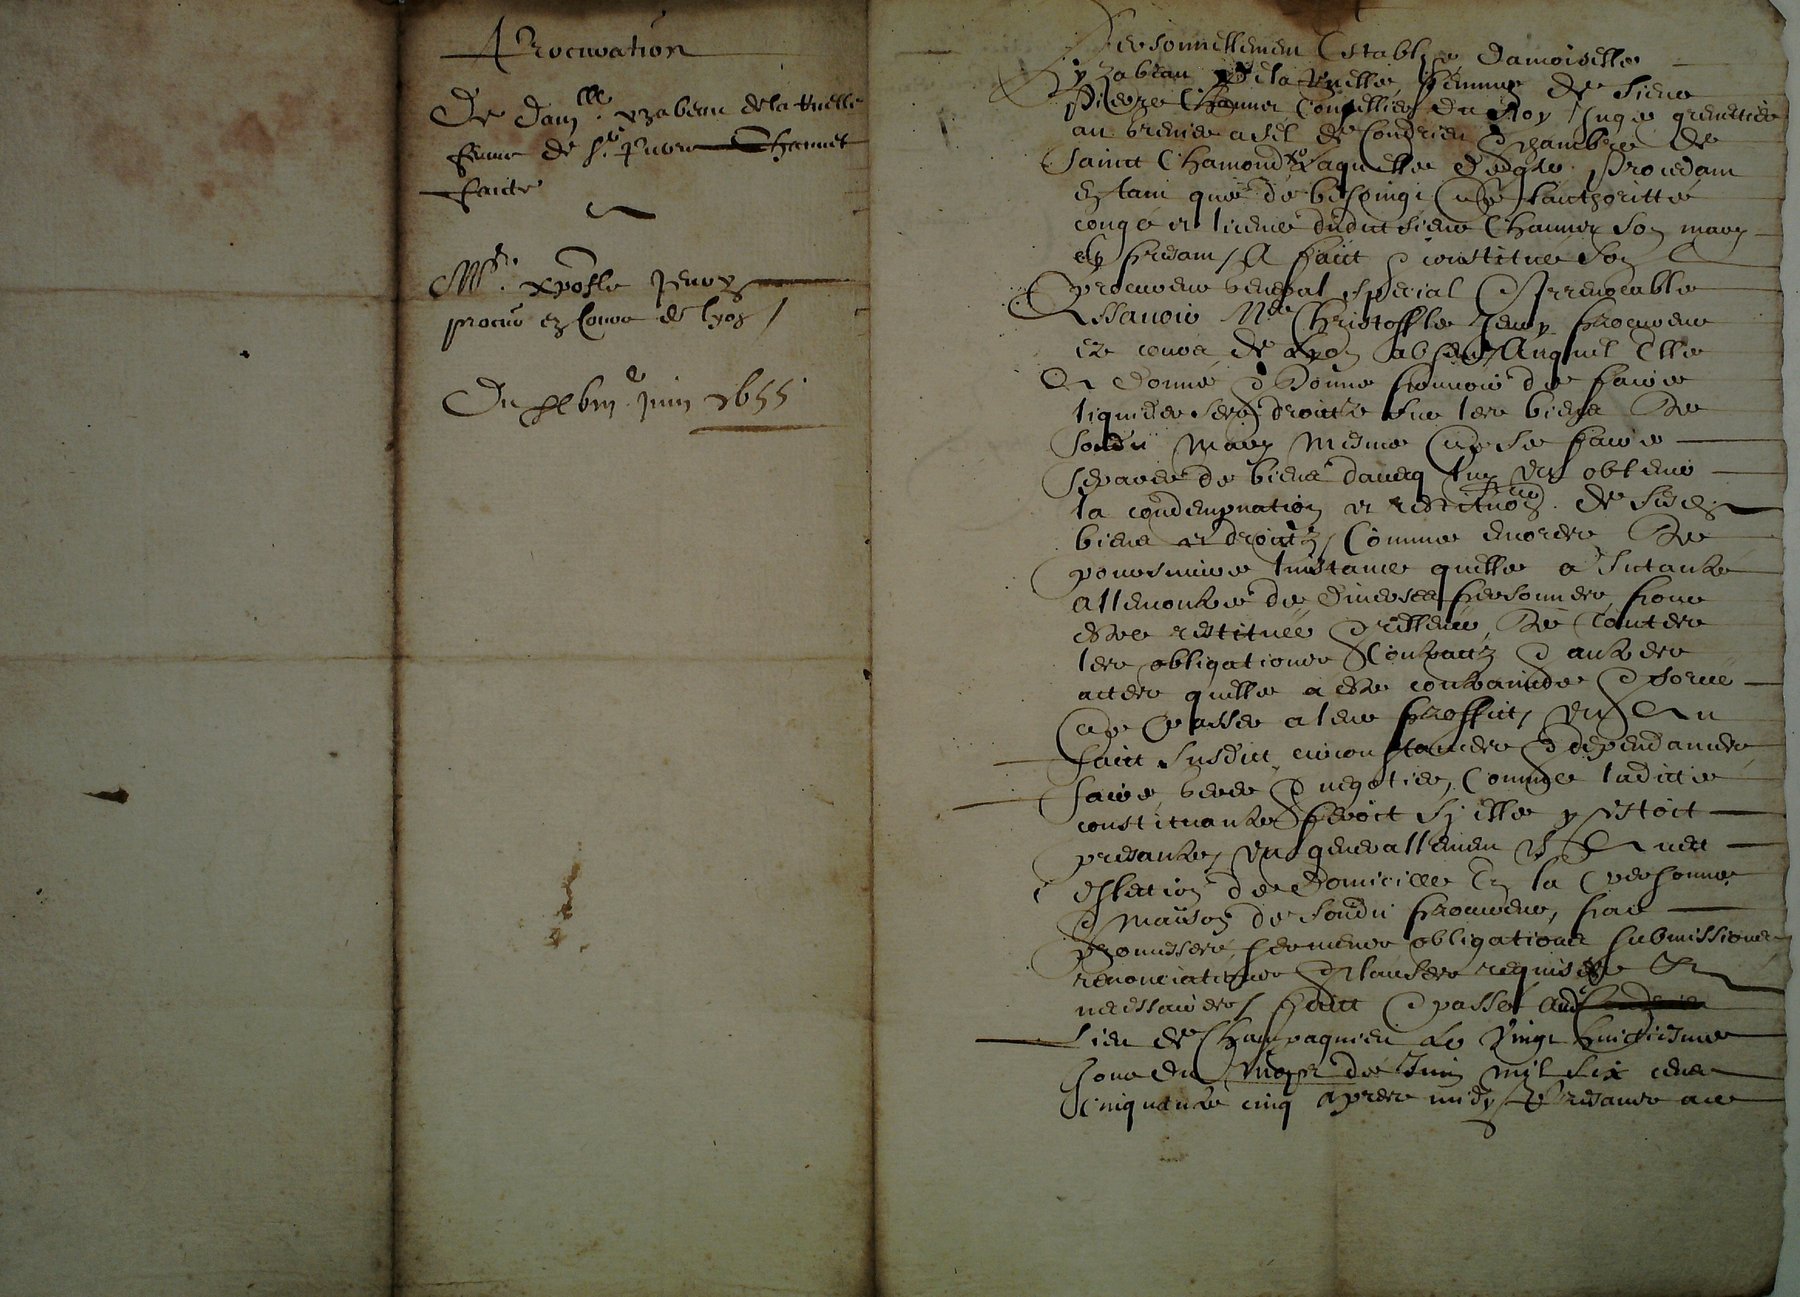 Procuration
De dam.lle yzabeau de la Ruelle
femme de Sr. Pierre Channet
faicte
Mre. xpofle Jenoy
procur ez Cours de lyon
Du juin 1655
Personnellement establye damoiselle
yzabeau de la Ruelle femme de sieur
Pierre Conseiller du Roy juge grenetier
au grenier a sel de Condrieu chambre de
sainct Chamond laquelle de gre procedant
en tant que de besoing de lauthoritté
congé et licence dudict sieur son mary
presant a faict constitue son
procureur general special et irrevocable
assavoir Me Christoffle procureur
ez cours de lyon absent auquel elle
a donné et donne pouvoir de faire
liquider ses droictz sur les biens de
sondit mary mesme de se faire
separer de biens davecq luy et obtenir
la condempnation et restitution de sesd
biens et droictz comme encores de
poursuivre linstance quelle a intantee
allencontre de diverses personnes pour
estre restituée et rellevée de toutes
les obligations contractz et autres
actes quelle a este contraincte et forcée
de passer a leur proffict, et du
faict susdict circonstances et dependances
faire gerer et negotier, comme ladicte
constituante feroit sy elle y estoit
presante, et generallement et avec
eslection de domicille en la personne
et maison de sondit procureur, par
promesses sermens obligations submissions
renonciations et clauses requises et
necessaires, faict et passé au
lieu de Champagnieu le vingt huictiesme
jour du moys de Juin mil six cens
cinquante cinq apres midy presans a ce